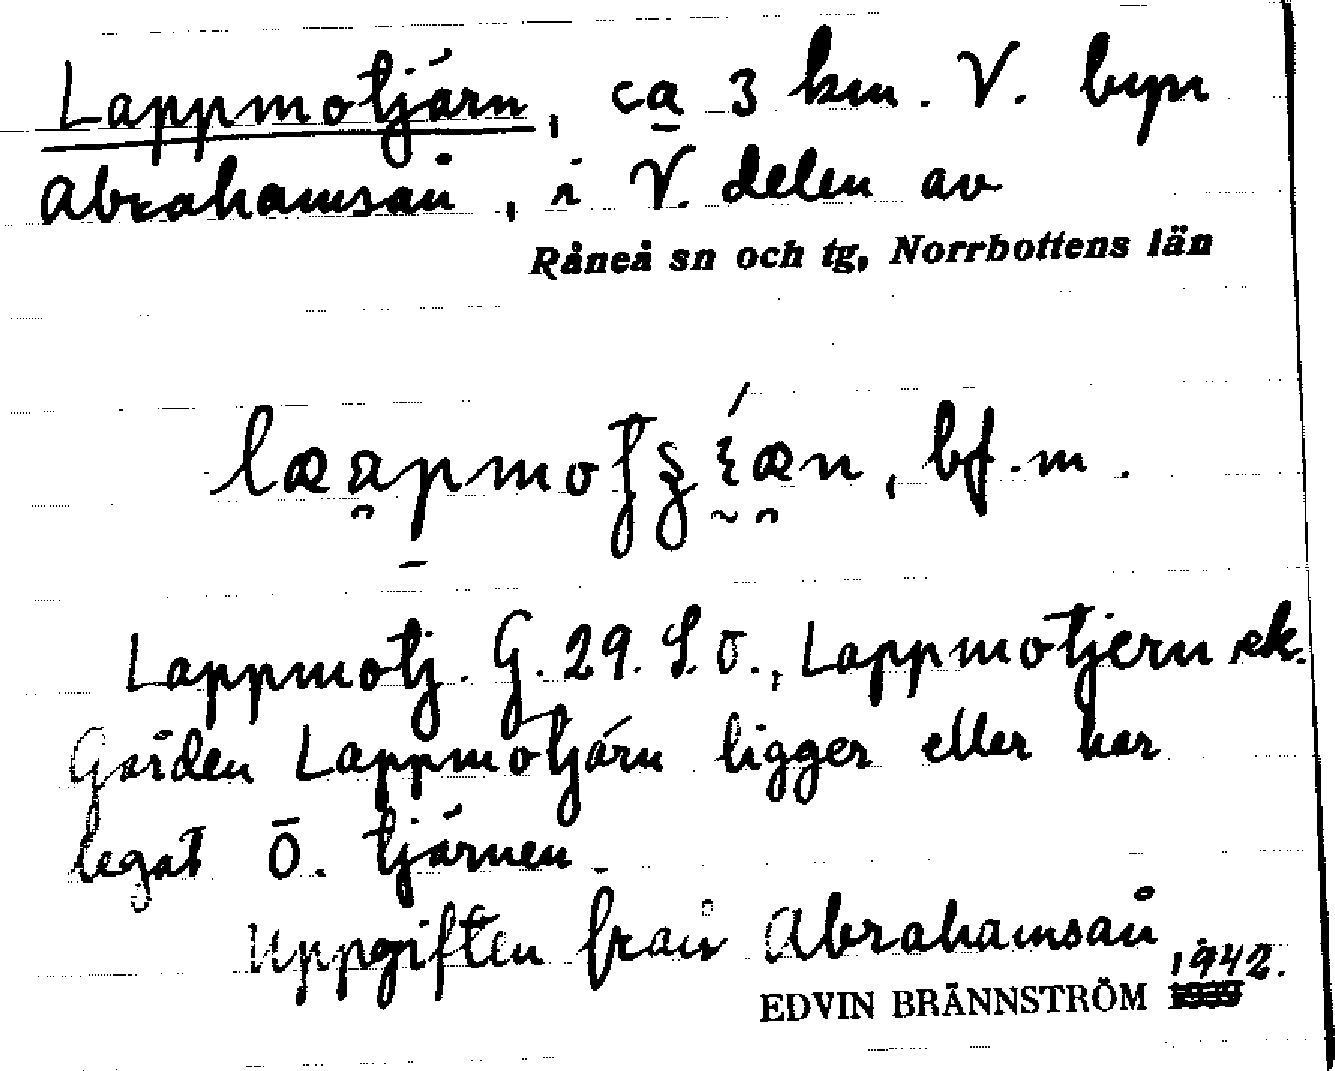 Lappmotjärn, ca 3 km. V. byn
Abrahamsån, i V. delen av
Råneå sn och tg, Norrbottens län
bf. m.
Lappmotj. G. 29. S.O., Lappmotjern ek.
Gården Lappmotjärn ligger eller har
legat Ö. tjärnen.
Uppgiften från Abrahamsån
1942.
EDVIN BRÄNNSTRÖM 1939